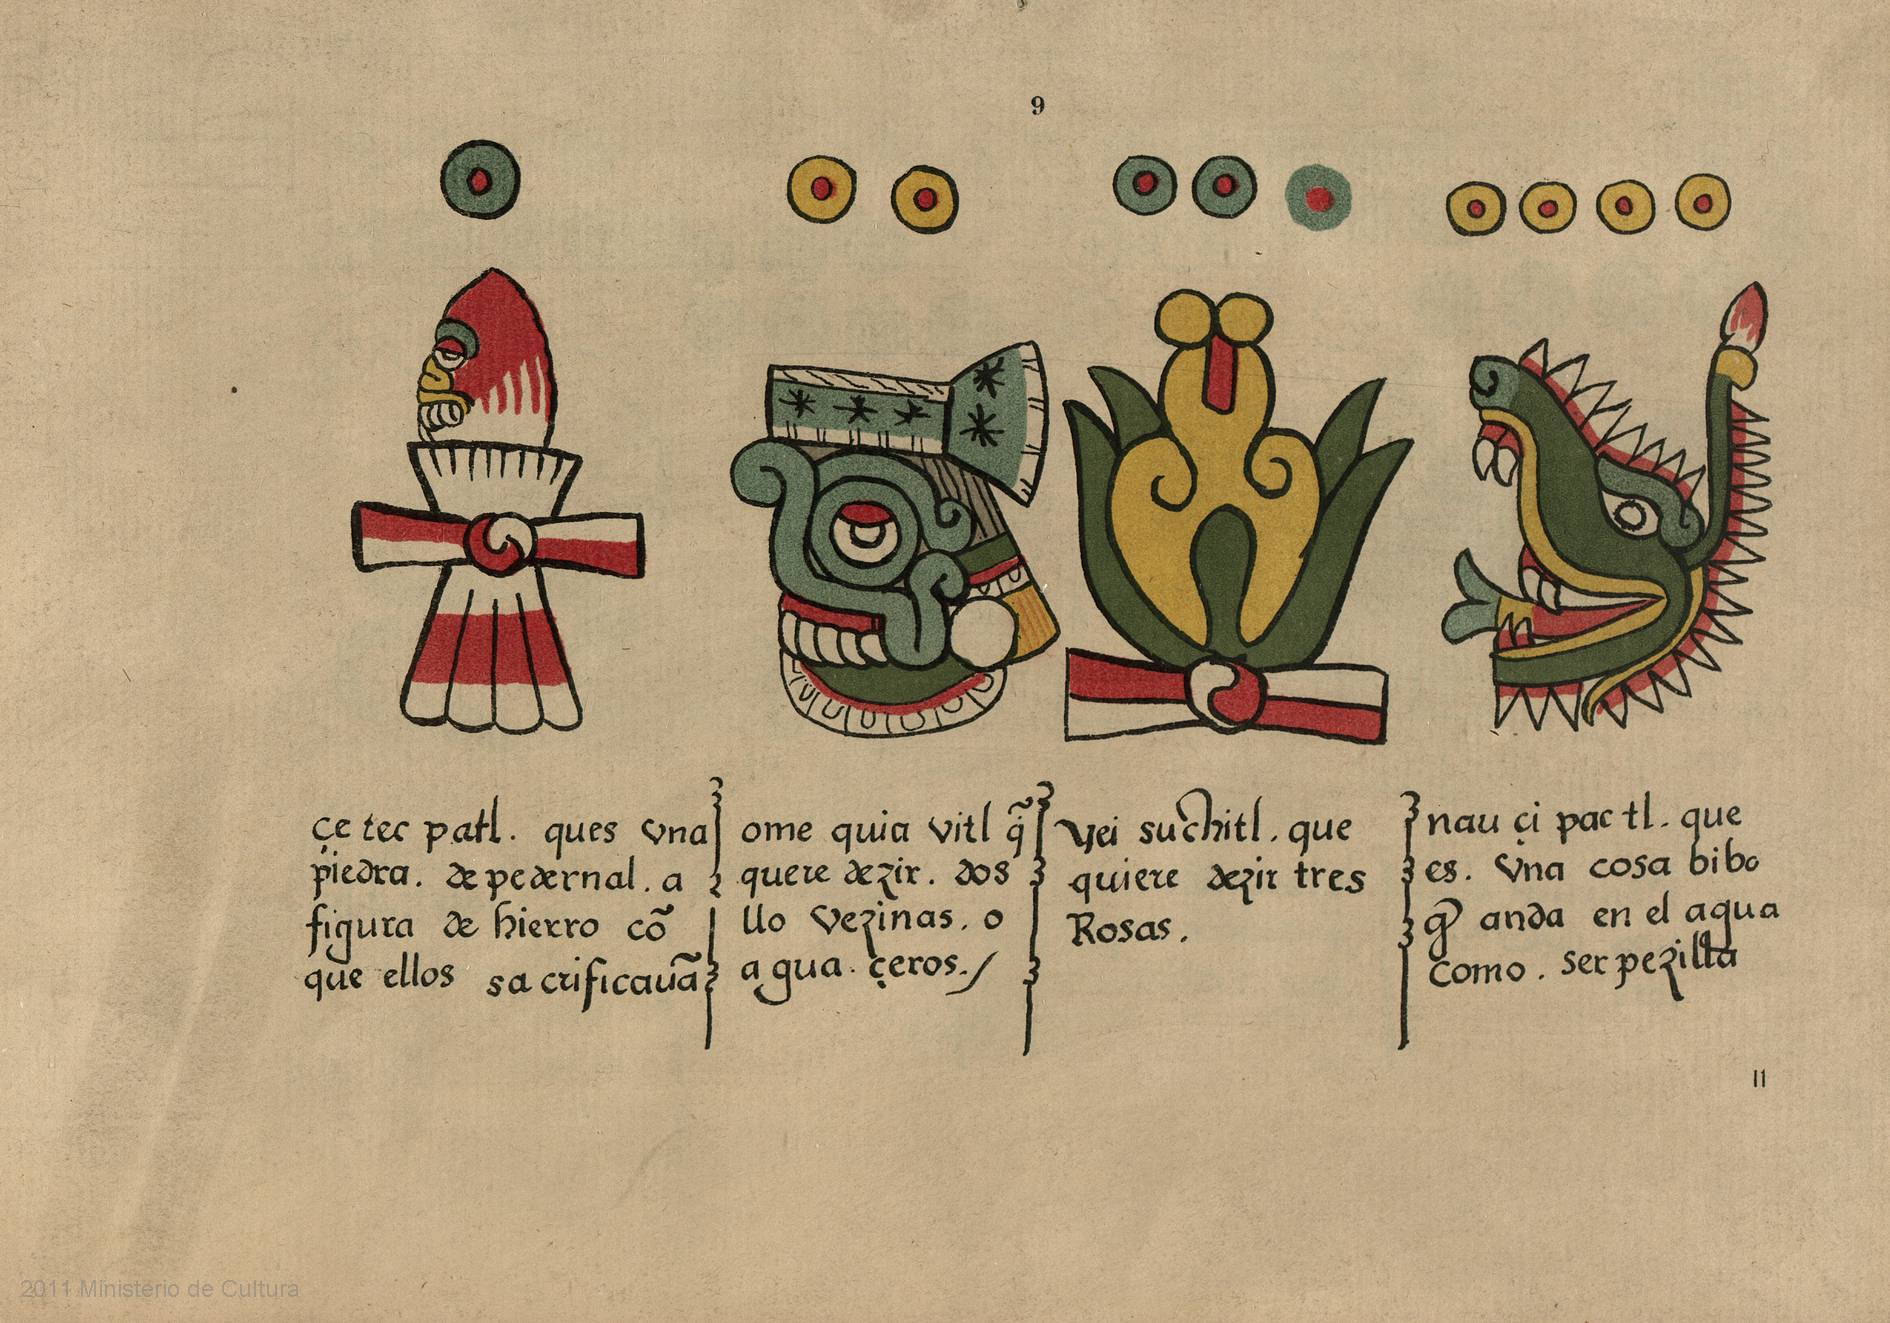 9
çe tec patl. ques vna
piedra. de pedernal. a
figura de hierro cõ
que ellos sacrificauã
ome quia vitl q̃
quere dezir. dos
llo vezinas. o
agua. çeros./
yei suchitl. que
quiere dezir tres
Rosas.
nau çi pactl. que
es. vna cosa bibo
q̃ anda en el agua
como. serpezilla
11
2011 Ministerio de Cultura